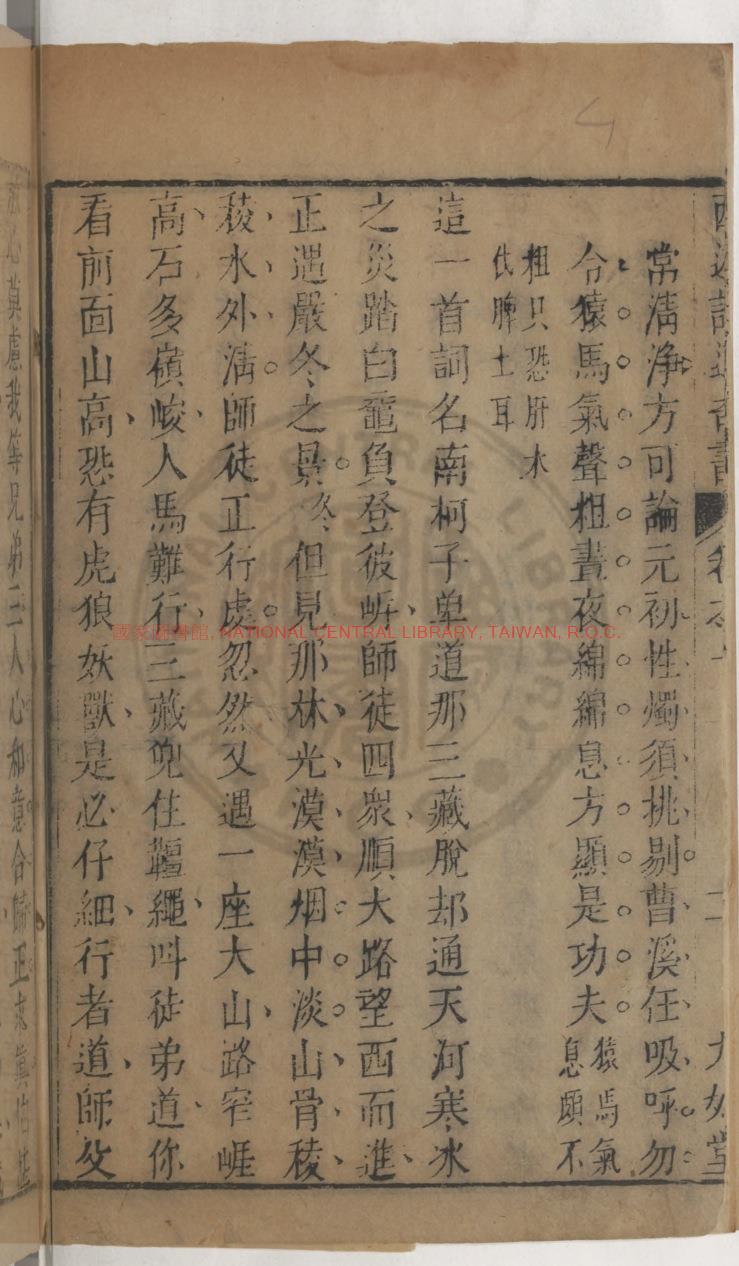 常清淨方可論元初性燭須挑剔曹溪任吸呼勿
令猿馬氣聲粗晝夜綿綿息方顯是功夫
猿馬氣
息頗不
粗只恐肝木
伐脾土耳
這一首詞名南柯子单道那三藏脫却通天河寒冰
之災踏白黿負登彼岸師徒四衆順大路望西而進
正遇嚴冬之景冬但見那林光漠漠烟中淡山骨稜
稜水外清師徒正行處忽然又遇一座大山路窄崕
高石多嶺峻人馬難行三藏兜住韁繩呌徒弟道你
看前面山高恐有虎狼妖獸是必仔細行者道師父
心莫慮我等兄弟三人心和意合歸正求真怕甚
國家圖書館, NATIONAL CENTRAL LIBRARY, TAIWAN, R.O.C.